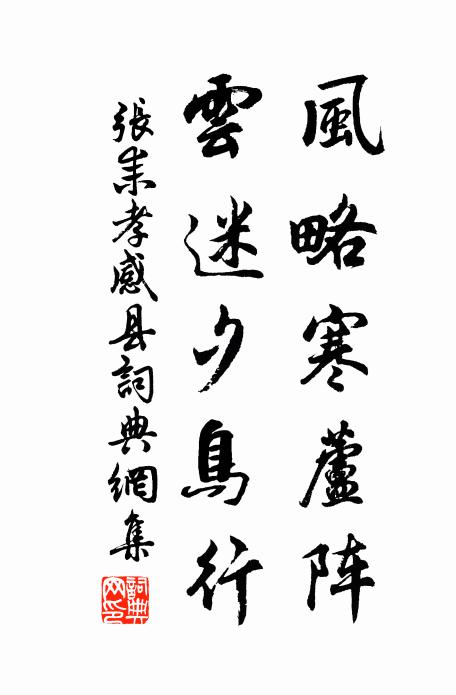 風略寒蘆阵
雲迷夕鳥行
張耒孝感县詞典網集
詞典
网印